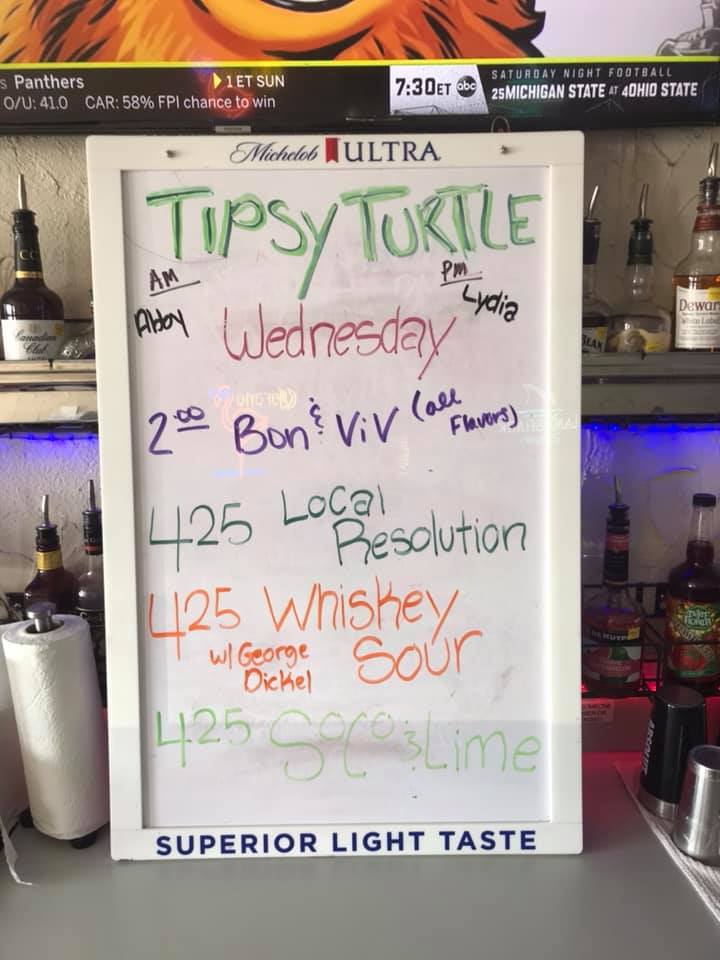 s Panthers
1 ET SUN
O/U: 41.0 CAR: 58% FPI chance to win
7:30ET abc
SATURDAY NIGHT FOOTBALL
25MICHIGAN STATE AT 4OHIO STATE
Michelob ULTRA
TIPSY TURTLE
AM
PM
Abby
Lydia
Wednesday
2.00 Bon & Viv (all Flavors)
425 Local
Resolution
425 Whiskey
w/ George Sour
Dickel
425 SoCo & Lime
SUPERIOR LIGHT TASTE
Canadian
Club
Dewar
White Label
ABSOLUT